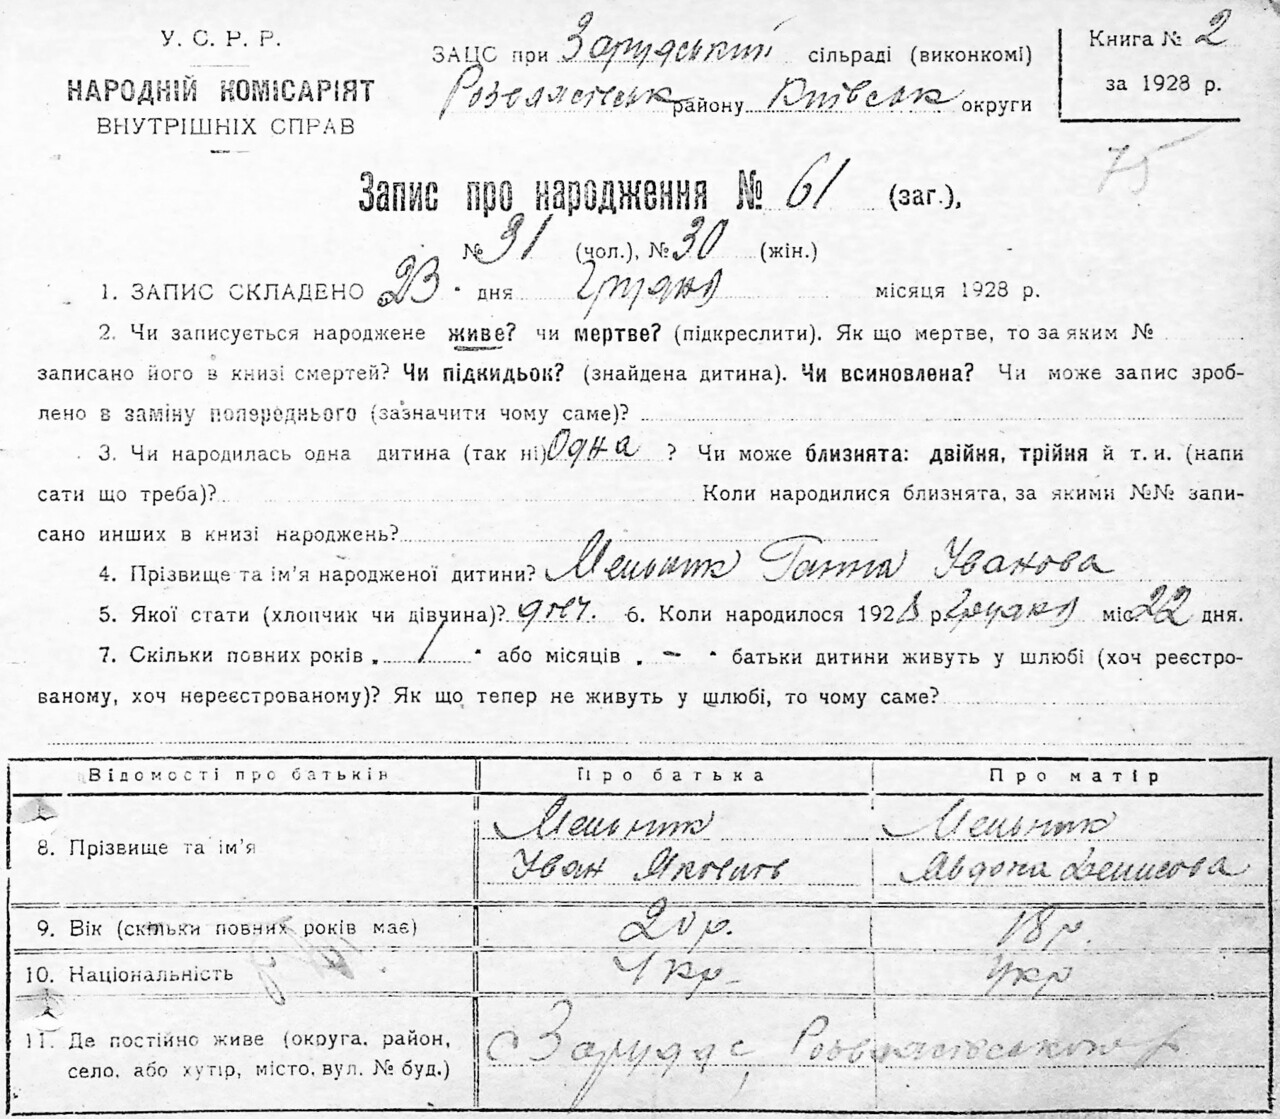 У. С. Р. Р.
НАРОДНІЙ КОМІСАРІЯТ
ВНУТРІШНІХ СПРАВ
ЗАЦС при Зарудський сільраді (виконкомі)
району Київськ округи
Книга № 2
за 1928 р.
75
Запис про народження № 61 (заг.),
№ 31 (чол.), № 30 (жін.)
1. ЗАПИС СКЛАДЕНО 23 дня Грудня місяця 1928 р.
2. Чи записується народжене живе? чи мертве? (підкреслити). Як що мертве, то за яким №
записано його в книзі смертей? Чи підкидьок? (знайдена дитина). Чи всиновлена? Чи може запис зроб-
лено в заміну попереднього (зазначити чому саме)?
3. Чи народилась одна дитина (так ні) Одна ? Чи може близнята: двійня, трійня й т. и. (напи
сати що треба)? Коли народилися близнята, за якими №№ запи-
сано инших в книзі народжень?
4. Прізвище та ім'я народженої дитини? Мельник Ганна Іванова
5. Якої стати (хлопчик чи дівчина)? 6. Коли народилося 1928 р. Грудня міс. 22 дня.
7. Скільки повних років „ 1 " або місяців „ — " батьки дитини живуть у шлюбі (хоч реєстро-
ваному, хоч нереєстрованому)? Як що тепер не живуть у шлюбі, то чому саме?
Відомості про батьків Про батька Про матір
8. Прізвище та ім'я Мельник Іван Якович Мельник Явдоха Денисова
9. Вік (скільки повних років має) 20 р. 18 р.
10. Національність Укр Укр
11. Де постійно живе (округа, район,
село, або хутір, місто, вул. № буд.) с Заруддє,